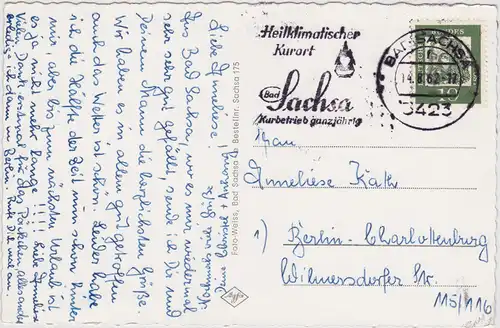 Liebe Anneliese!
Aus Bad Sachsa, wo es mir wiedermal
sehr sehr gut gefällt, sende ich Dir und
Deinem Mann die herzlichsten Grüße.
Wir haben es in allem gut getroffen
auch das Wetter ist schön. Leider habe
ich die Hälfte der Zeit nun schon hinter
mir, aber bis zum nächsten Urlaub ist
es ja nicht mehr lange!!!! Liebe Anneliese
Vielen Dank erstmal für das Päckchen, alles andere
erledige ich dann in Berlin.
Foto-Weiss, Bad Sachsa Bestellnr. Sachsa 175
Agfa
Heilklimatischer
Kurort
Bad
Sachsa
Kurbetrieb ganzjährig
BAD SACHSA
14.8.62-17
3423
10
Frau
Anneliese Kath
1) Berlin-Charlottenburg
Wilmersdorfer Str.
115/116